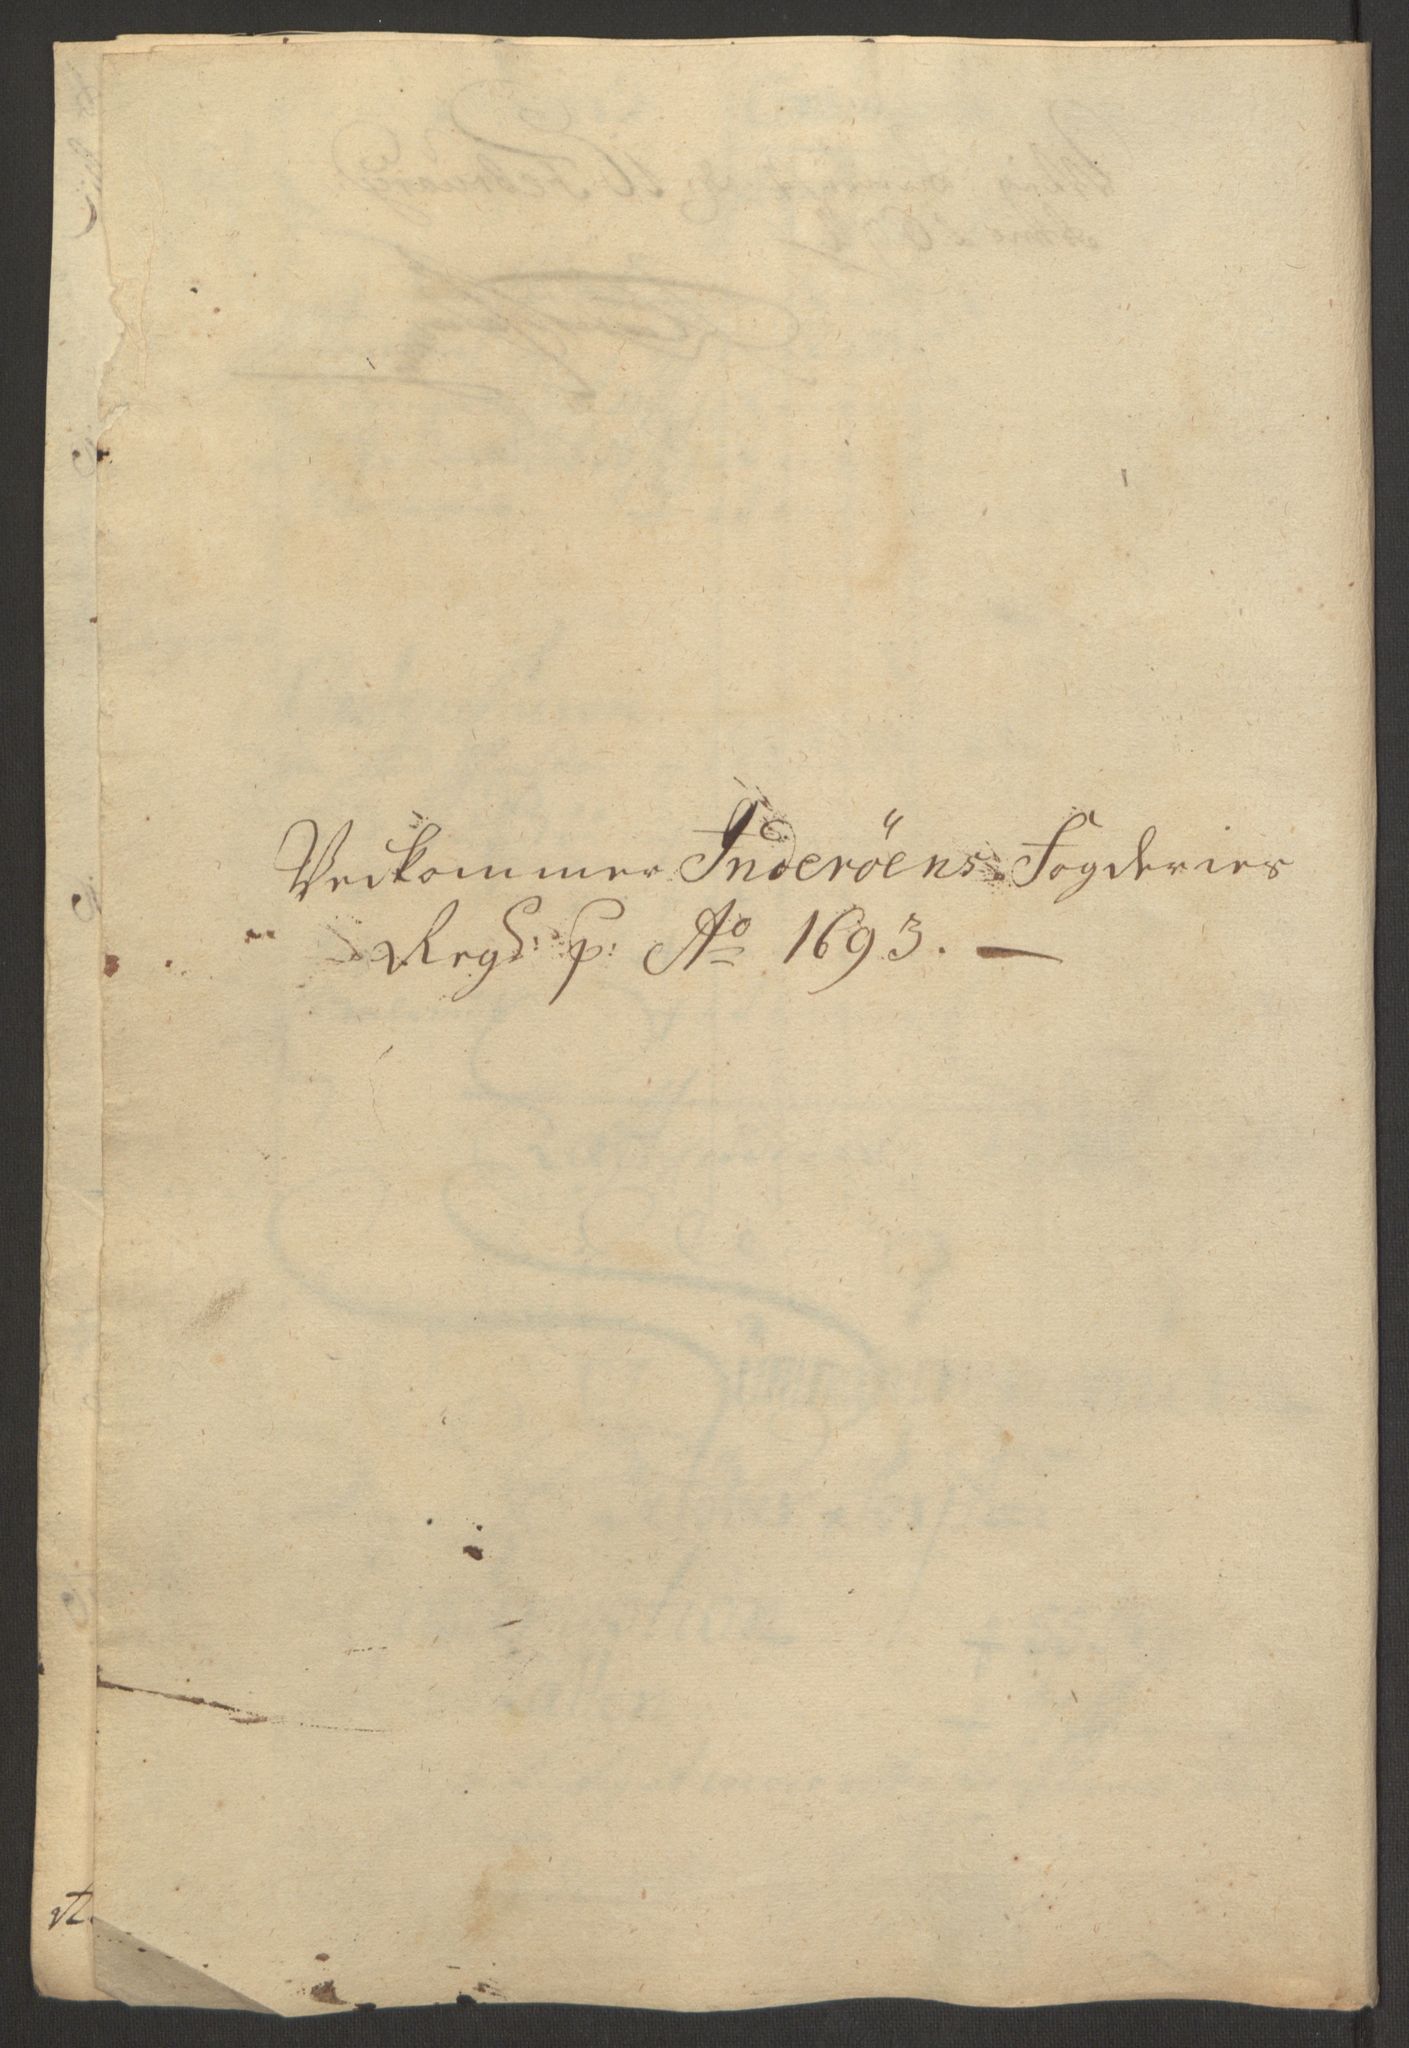 Vedkommer Inderöens Fogderies
Regs: p: Ao 1693. —